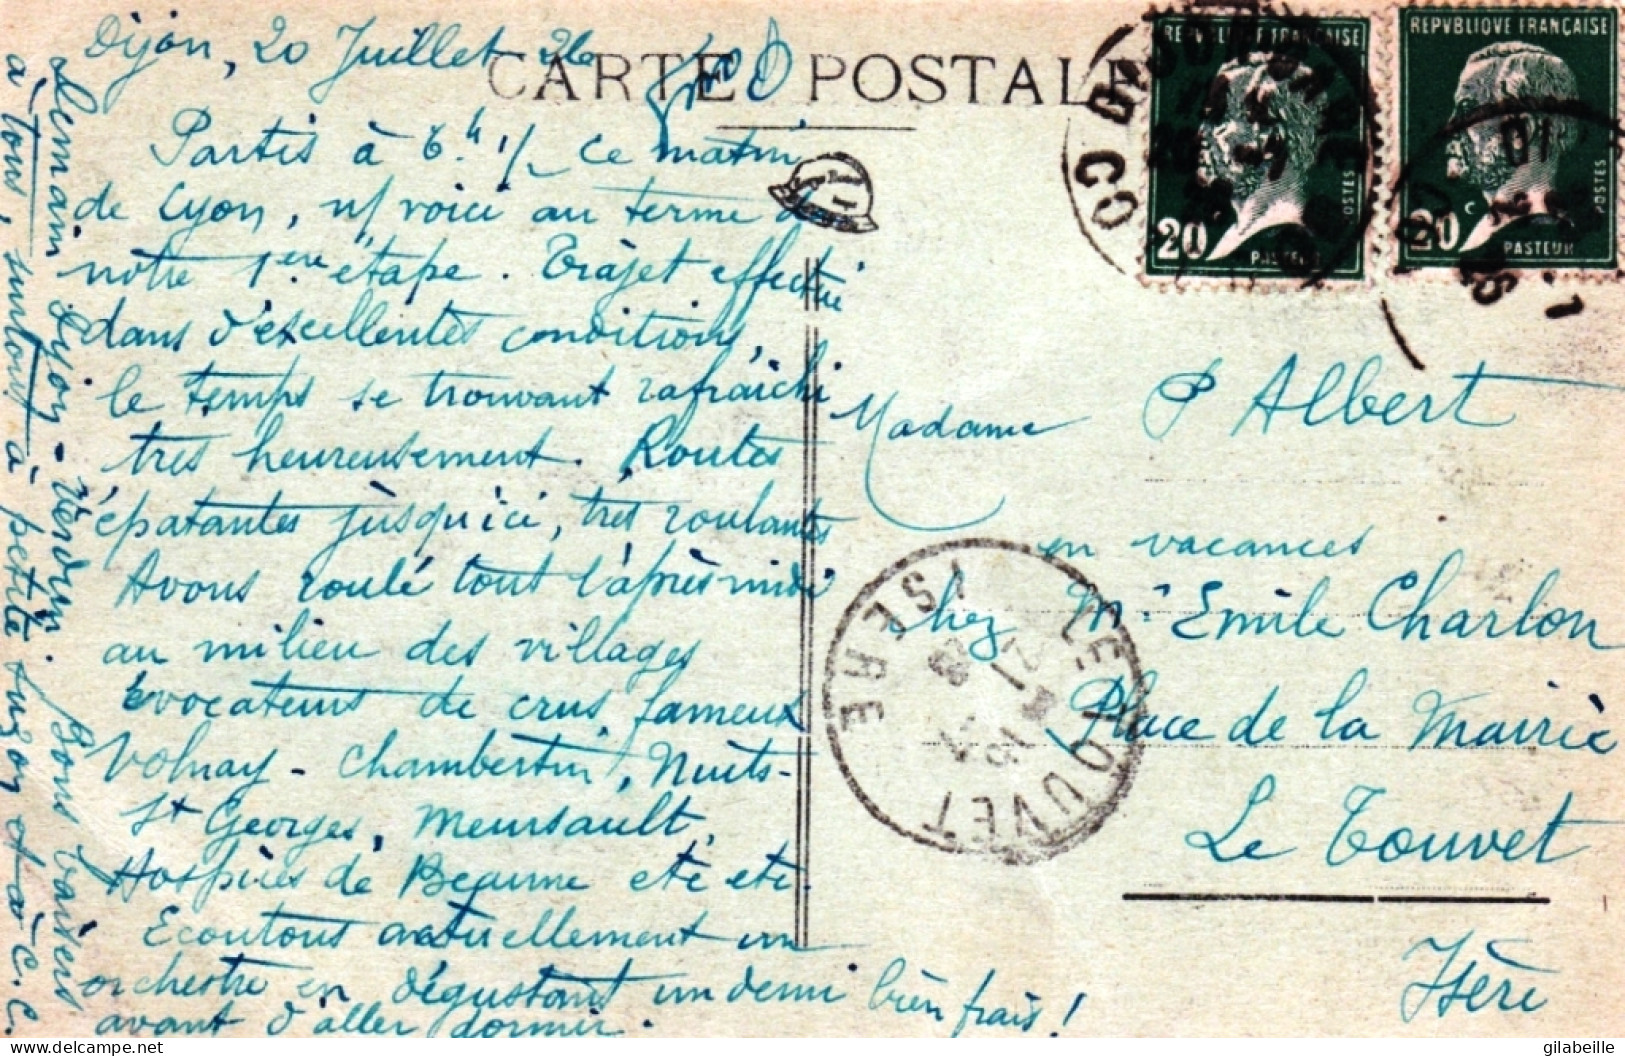 Dijon, 20 Juillet 26
CARTE POSTALE
Partis à 6h 1/2 ce matin
de Lyon, n/ voici au terme de
notre 1ère étape. Trajet effectué
dans d'excellentes conditions,
le temps se trouvant rafraichi
très heureusement. Routes
épatantes jusqu'ici, très roulantes
Avons roulé tout l'après midi
au milieu des villages
évocateurs de crus fameux
Volnay - Chambertin, Nuits-
St Georges, Meursault,
Hospices de Beaune etc etc.
Ecoutons actuellement un
orchestre en dégustant un demi bien frais !
avant d'aller dormir.
Demain Dijon - Verdun. Bons baisers
à tous, surtout à petite Suzon et à C. C.
REPVBLIQVE FRANÇAISE
20 c
POSTES
PASTEUR
REPVBLIQVE FRANÇAISE
20 c
POSTES
PASTEUR
Madame P Albert
en vacances
chez Mr Emile Charlon
Place de la Mairie
Le Touvet
Isère
LE TOUVET
ISERE
gilabeille